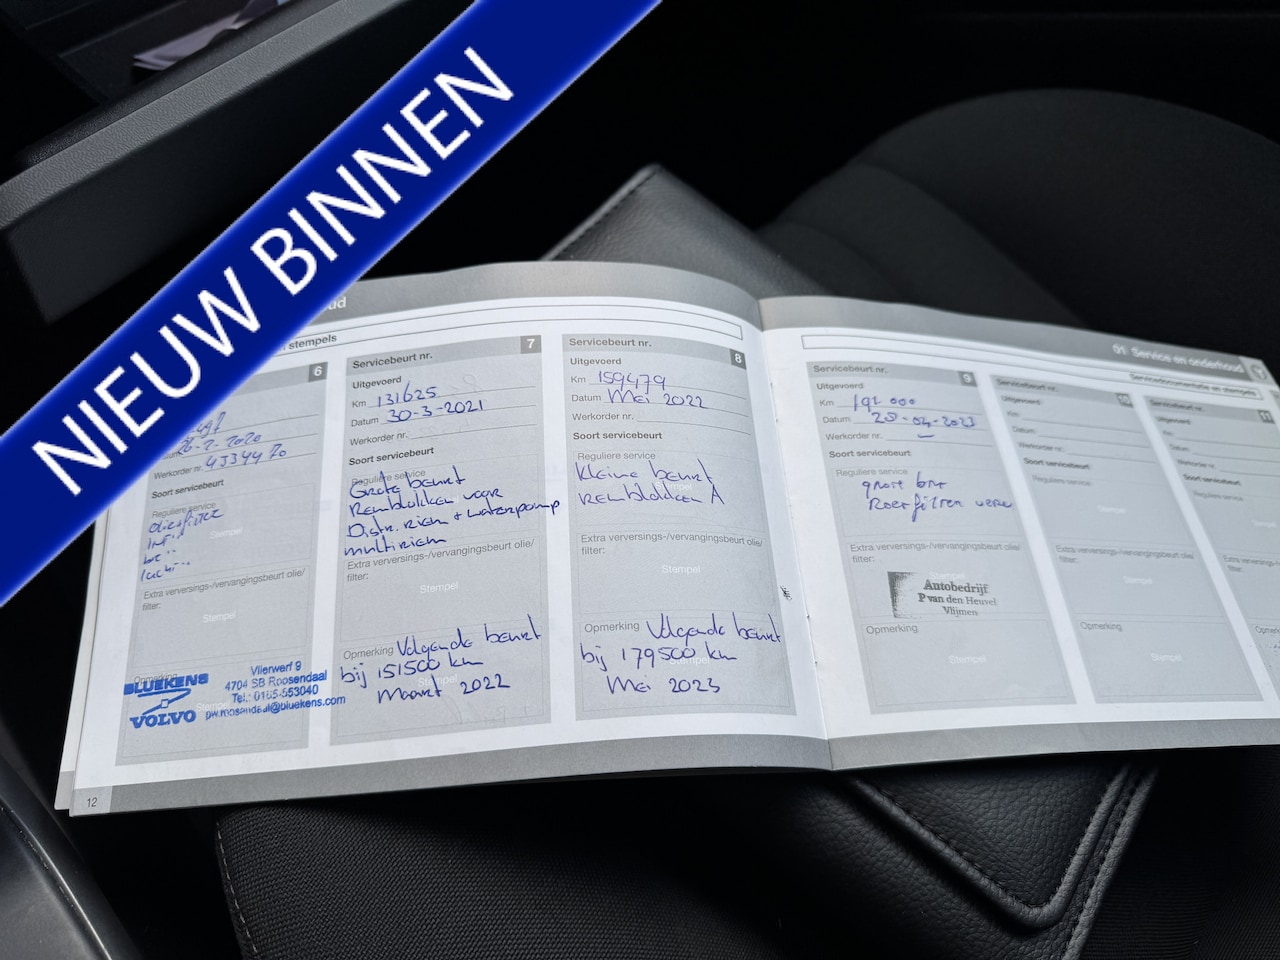 NIEUW BINNEN
stempels
6
Werkorder nr. 4334470
Soort servicebeurt
Reguliere service
Stempel
Extra verversings-/vervangingsbeurt olie/
filter:
Stempel
Opmerking
BLUEKENS
VOLVO
Vlierwerf 9
4704 SB Roosendaal
Tel.: 0165-553040
Servicebeurt nr. 7
Uitgevoerd
Km 131625
Datum 30-3-2021
Werkorder nr.
Soort servicebeurt
Reguliere service
Grote beurt
Remblokken voor
Distr. riem + waterpomp
multiriem
Extra verversings-/vervangingsbeurt olie/
filter:
Stempel
Opmerking Volgende beurt
bij 151500 km
Maart 2022
Servicebeurt nr. 8
Uitgevoerd
Km 159479
Datum Mei 2022
Werkorder nr.
Soort servicebeurt
Reguliere service
Kleine beurt
Remblokken A
Extra verversings-/vervangingsbeurt olie/
filter:
Stempel
Opmerking Volgende beurt
bij 179500 km
Mei 2023
12
01 Service en onderhoud
Servicedocumentatie en stempels
Servicebeurt nr. 9
Uitgevoerd
Km 192 000
Datum 25-04-2023
Werkorder nr.
Soort servicebeurt
Reguliere service
Extra verversings-/vervangingsbeurt olie/
filter:
Autobedrijf
P van den Heuvel
Vlijmen
Opmerking
Stempel
Servicebeurt nr. 10
Uitgevoerd
Km
Datum
Werkorder nr.
Soort servicebeurt
Reguliere service
Stempel
Extra verversings-/vervangingsbeurt olie/
filter:
Stempel
Opmerking
Stempel
Servicebeurt nr. 11
Uitgevoerd
Km
Datum
Werkorder nr.
Soort servicebeurt
Reguliere service
Stempel